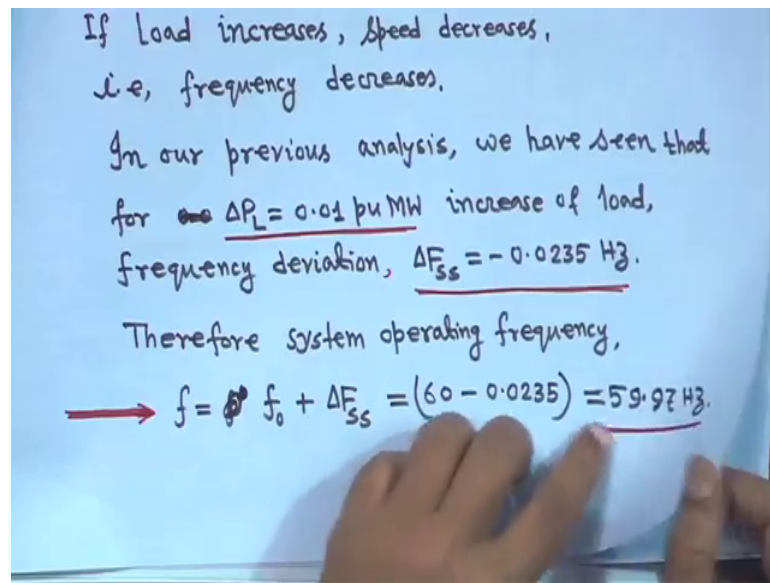 If Load increases, speed decreases.
i.e, frequency decreases.
In our previous analysis, we have seen that
for ΔP_L = 0.01 pu MW increase of load,
frequency deviation, ΔF_ss = - 0.0235 Hz.
Therefore system operating frequency,
f = f_0 + ΔF_ss = (60 - 0.0235) = 59.97 Hz.